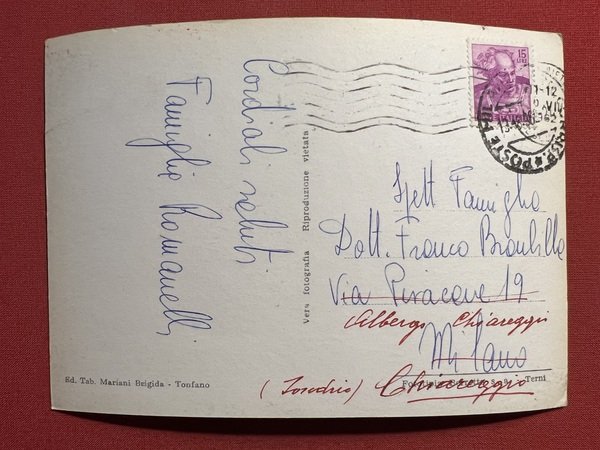 Cordiali saluti
Famiglia Romanelli
Vera fotografia Riproduzione vietata
Ed. Tab. Mariani Brigida - Tonfano
15
LIRE
11-12
1962
POSTE
Spett Famiglia
Dott. Franco Brambilla
Via Piracane 19
Albergo Chiareggio
Milano
(Sondrio) Chiareggio
Terni